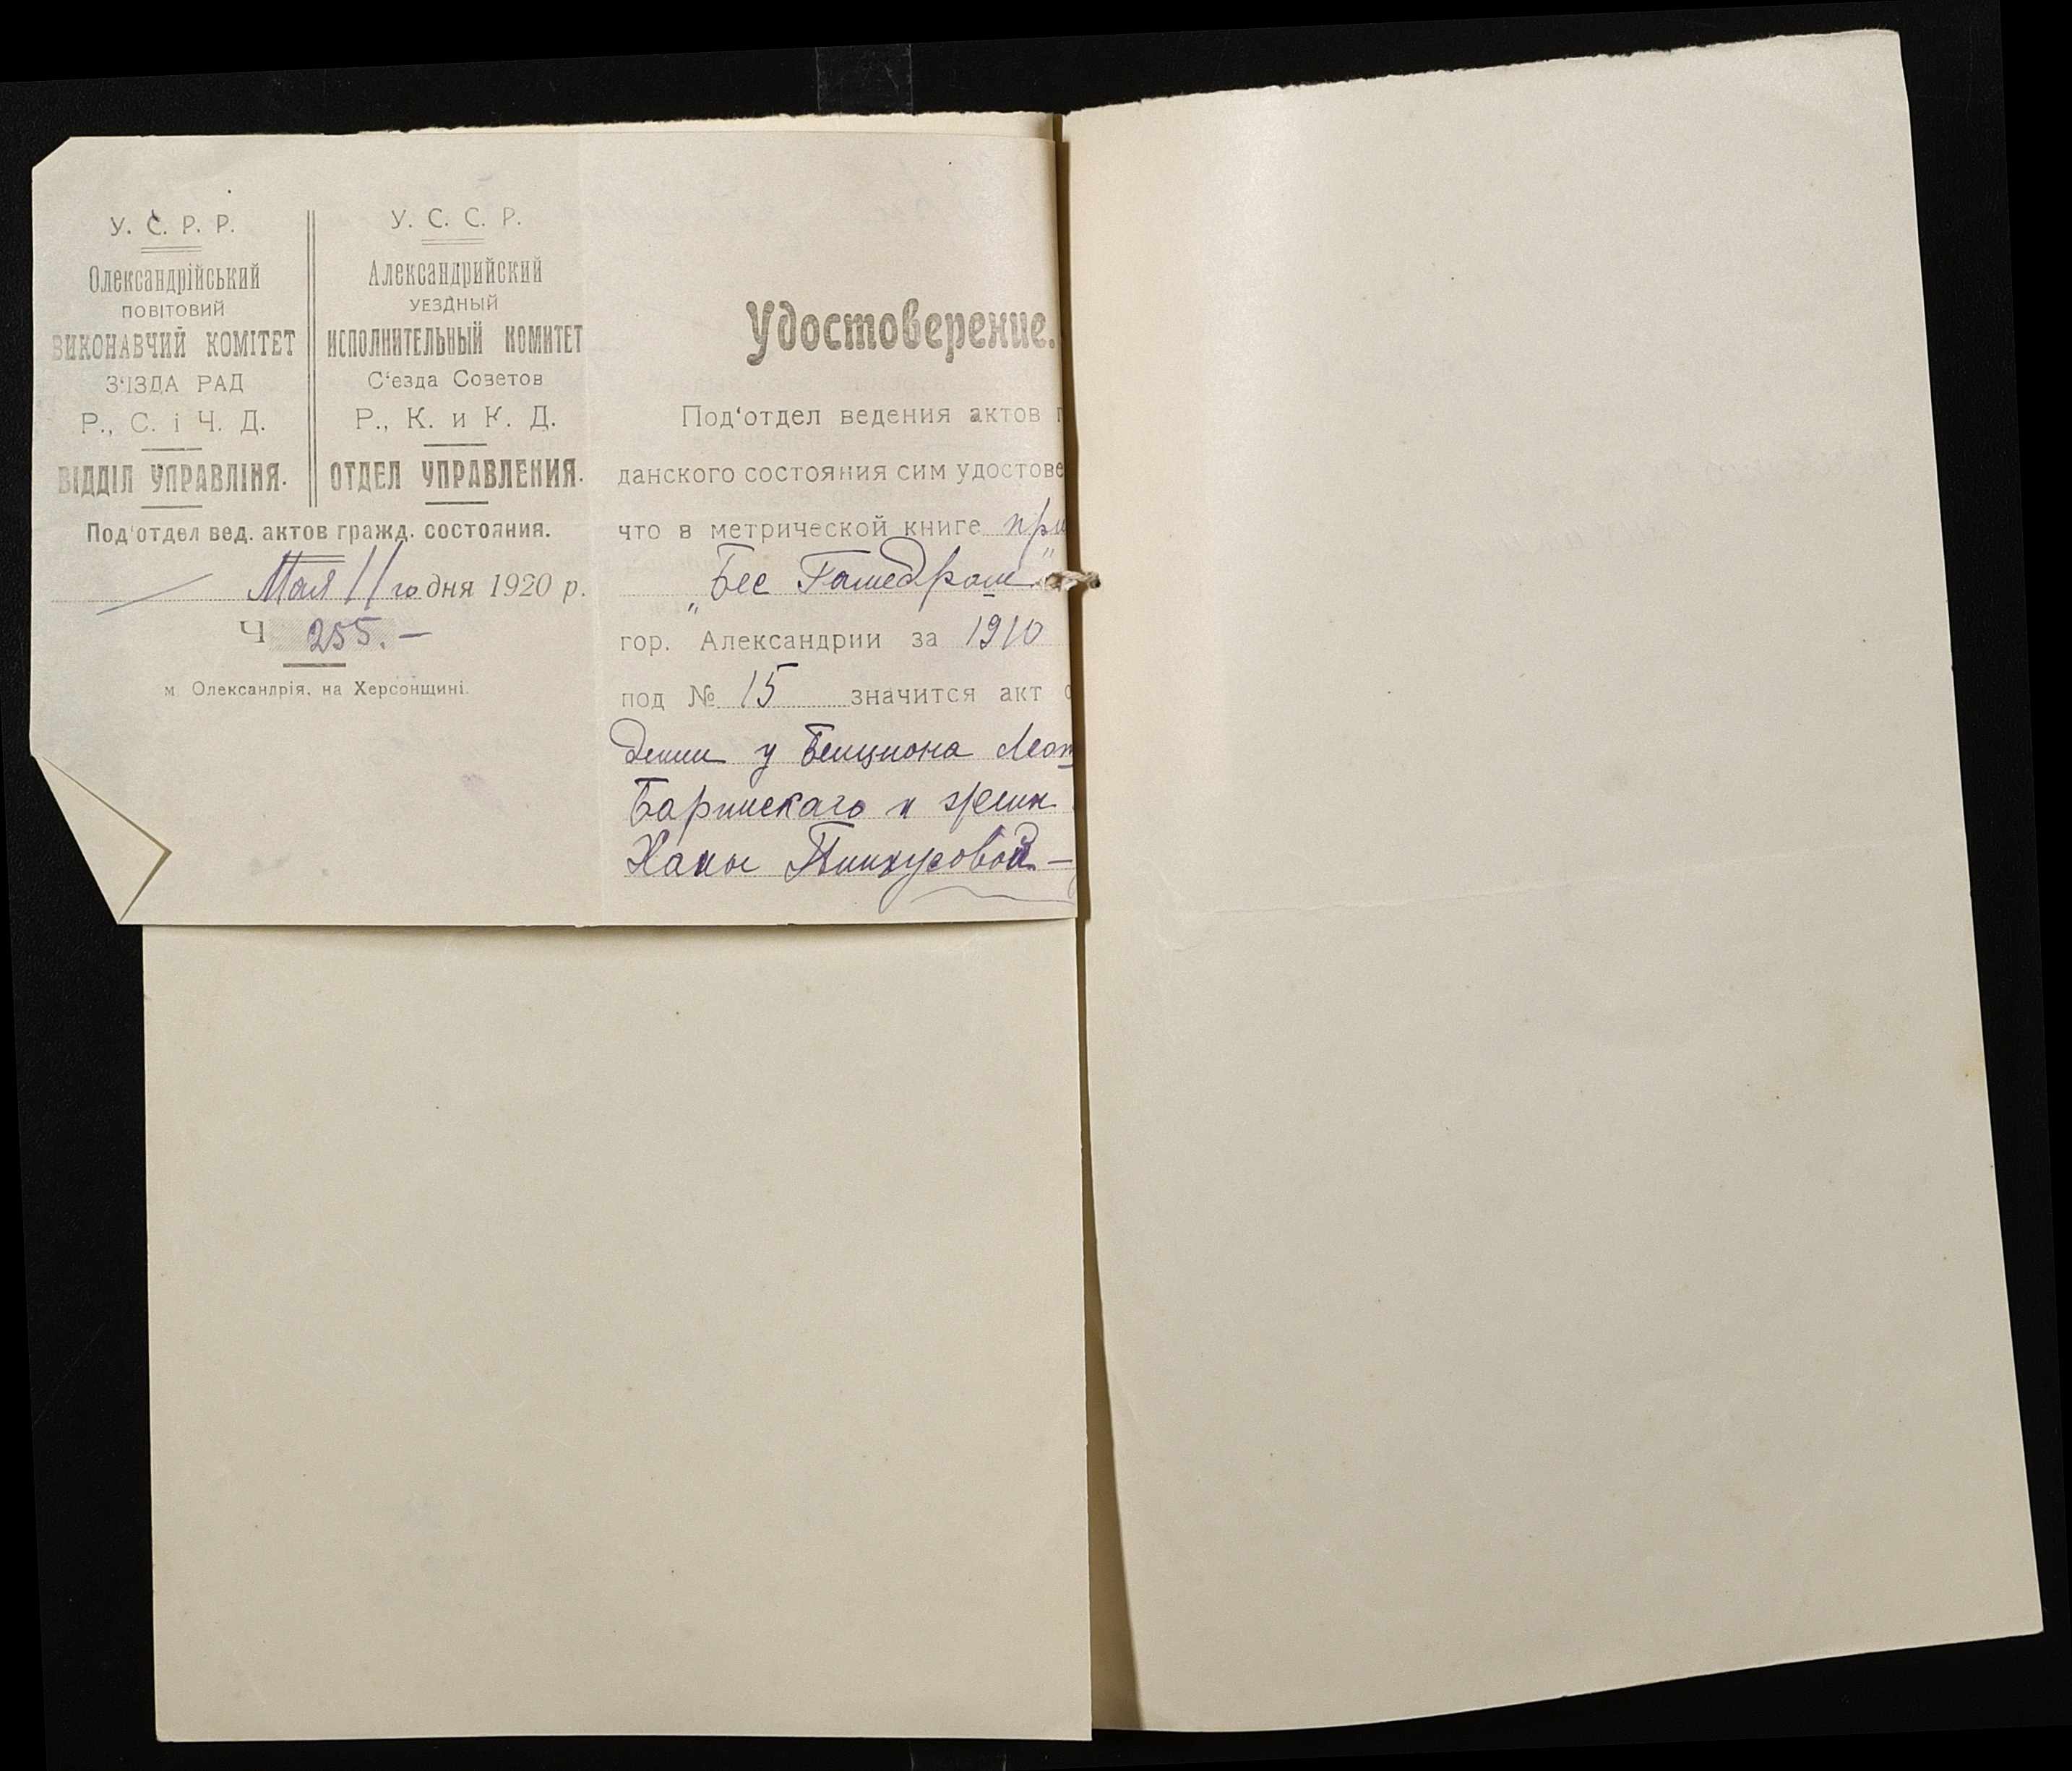 У. С. Р. Р.
Олександрійський
ПОВІТОВИЙ
ВИКОНАВЧИЙ КОМІТЕТ
З'ЇЗДА РАД
Р., С. і Ч. Д.
ВІДДІЛ УПРАВЛІНЯ.
У. С. С. Р.
Александрийский
УЕЗДНЫЙ
ИСПОЛНИТЕЛЬНЫЙ КОМИТЕТ
С'езда Советов
Р., К. и К. Д.
ОТДЕЛ УПРАВЛЕНИЯ.
Под'отдел вед. актов гражд. состояния.
Мая 11 го дня 1920 р.
Ч 255.—
м. Олександрія, на Херсонщині.
Удостоверение.
Под'отдел ведения актов г
данского состояния сим удостове
что в метрической книге при
„Бес Гамедраш"
гор. Александрии за 1910
под № 15 значится акт о
дении у Бенциона Леон
Баринскаго и жены
Ханы Пинхусовой —